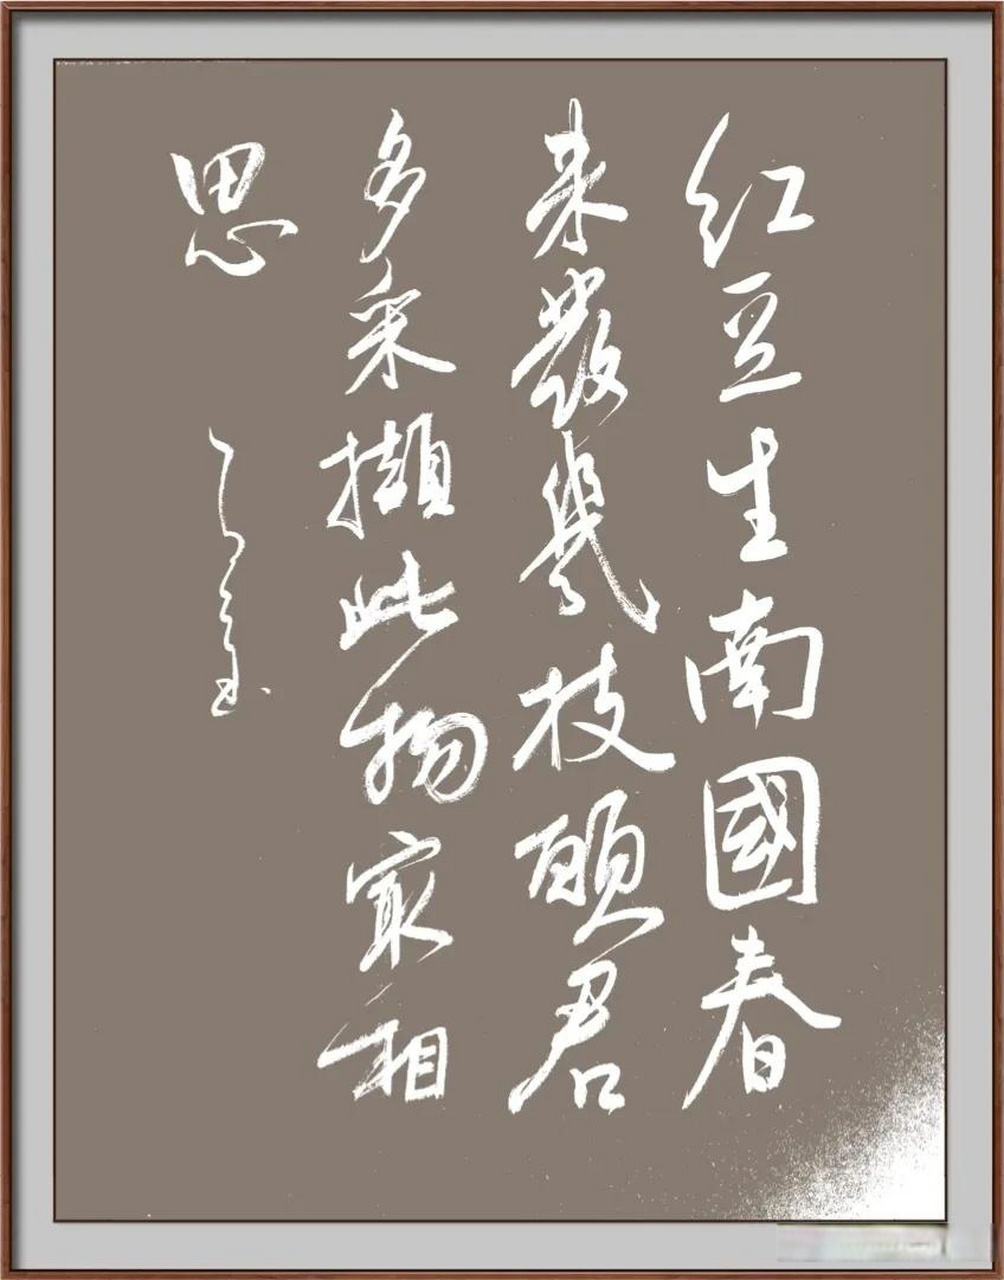 红豆生南國春
来發幾枝願君
多采擷此物最相
思